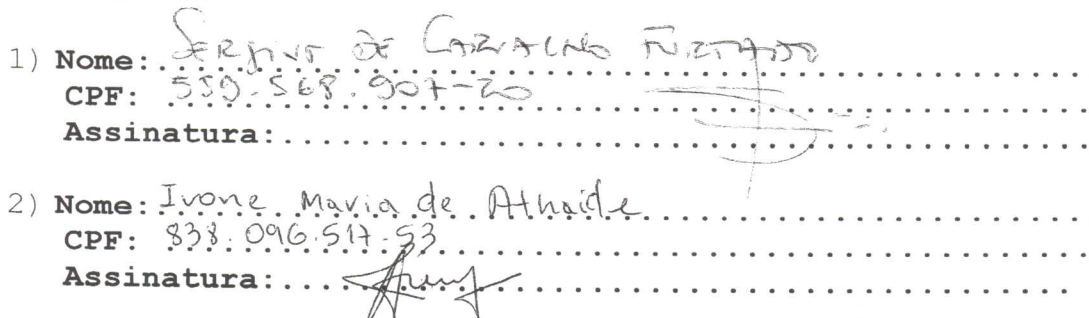 1) Nome: DE CARVALHO
CPF: 559.568.907-20
Assinatura:
2) Nome: Ivone Maria de Athaide
CPF: 838.096.517-53
Assinatura: